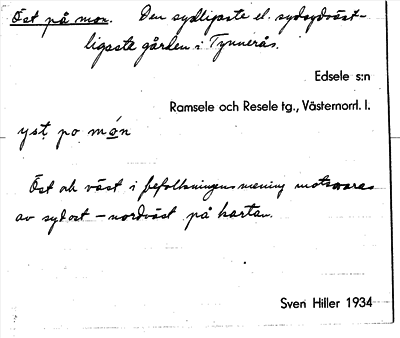 Öst på mon. Den sydligaste el. sydsydväst-
ligaste gården i Tynnerås.
Edsele s:n
Ramsele och Resele tg., Västernorrl. l.
yst po món
Öst och väst i befolkningens mening motsvaras
av sydost – nordväst på kartan.
Sven Hiller 1934